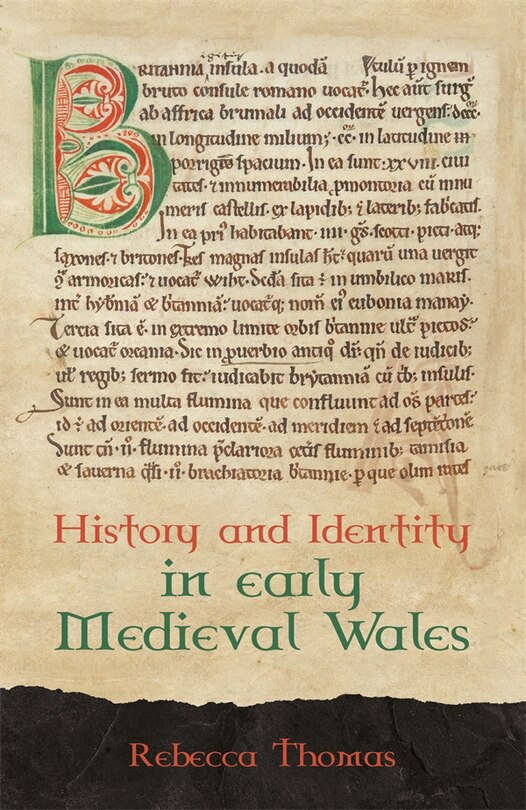 BRITANNIA insula. a quodā
bruto consule romano uocat᷑. hec aut̄ surg᷑
ab affrica brumali ad occidentē uergens.
in longitudine milium; in latitudine
spacium. In ea sunt. xxviii. ciui
tates. ⁊ innumerabilia ꝓmontoria cū innu
meris castellis. ex lapidib; ⁊ laterib; fab̓catis.
In ea habitabant. iiii. scotti. picti. atq;
saxones. ⁊ britones. magnas insulas quarū una uergit
armoricas. ⁊ uocat᷑ sita in umbilico maris.
int̓ & uocat᷑q; nom̄ ei᷑ eubonia manay.
Tercia sita ē. in extremo limite orbis b̓tannie ult᷑ pictos.
& uocat᷑ orcania. Sic in ꝓuerbio antiq̊ dr̄. qn̄ de iudicib;
ul᷑ regib; sermo fit. iudicabit brytanniā cū insulis.
Sunt in ea multa flumina que confluunt ad os̄ partes.
id ÷ ad orientē. ad occidentē. ad meridiem ⁊ ad septētōnē
Sunt tn̄. ii. flumina p̄clariora fluminib; tamisia
& sauerna. ii. brachia b̓tannie. ꝑ que olim rates
History and Identity
in early
Medieval Wales
Rebecca Thomas